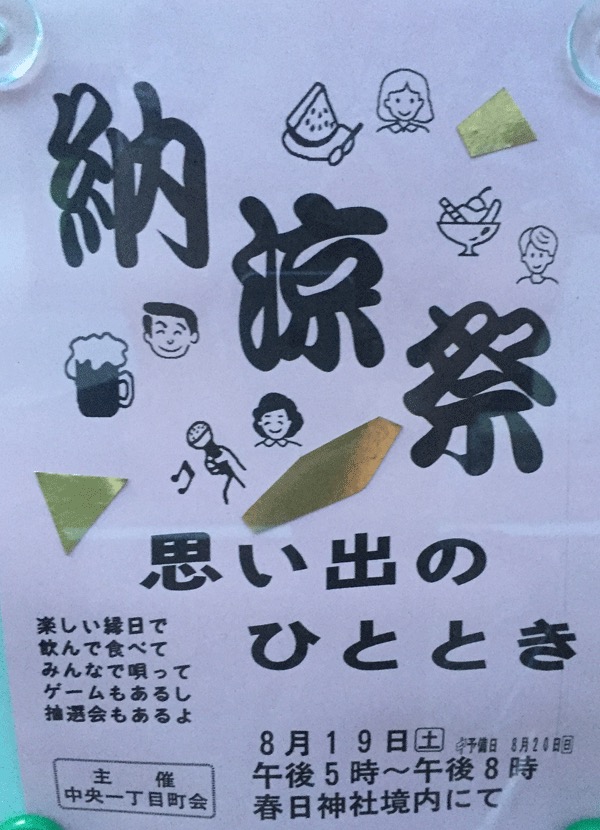 納涼祭
思い出の
ひととき
楽しい縁日で
飲んで食べて
みんなで唄って
ゲームもあるし
抽選会もあるよ
8月19日土 予備日 8月20日日
午後5時～午後8時
春日神社境内にて
主催
中央一丁目町会